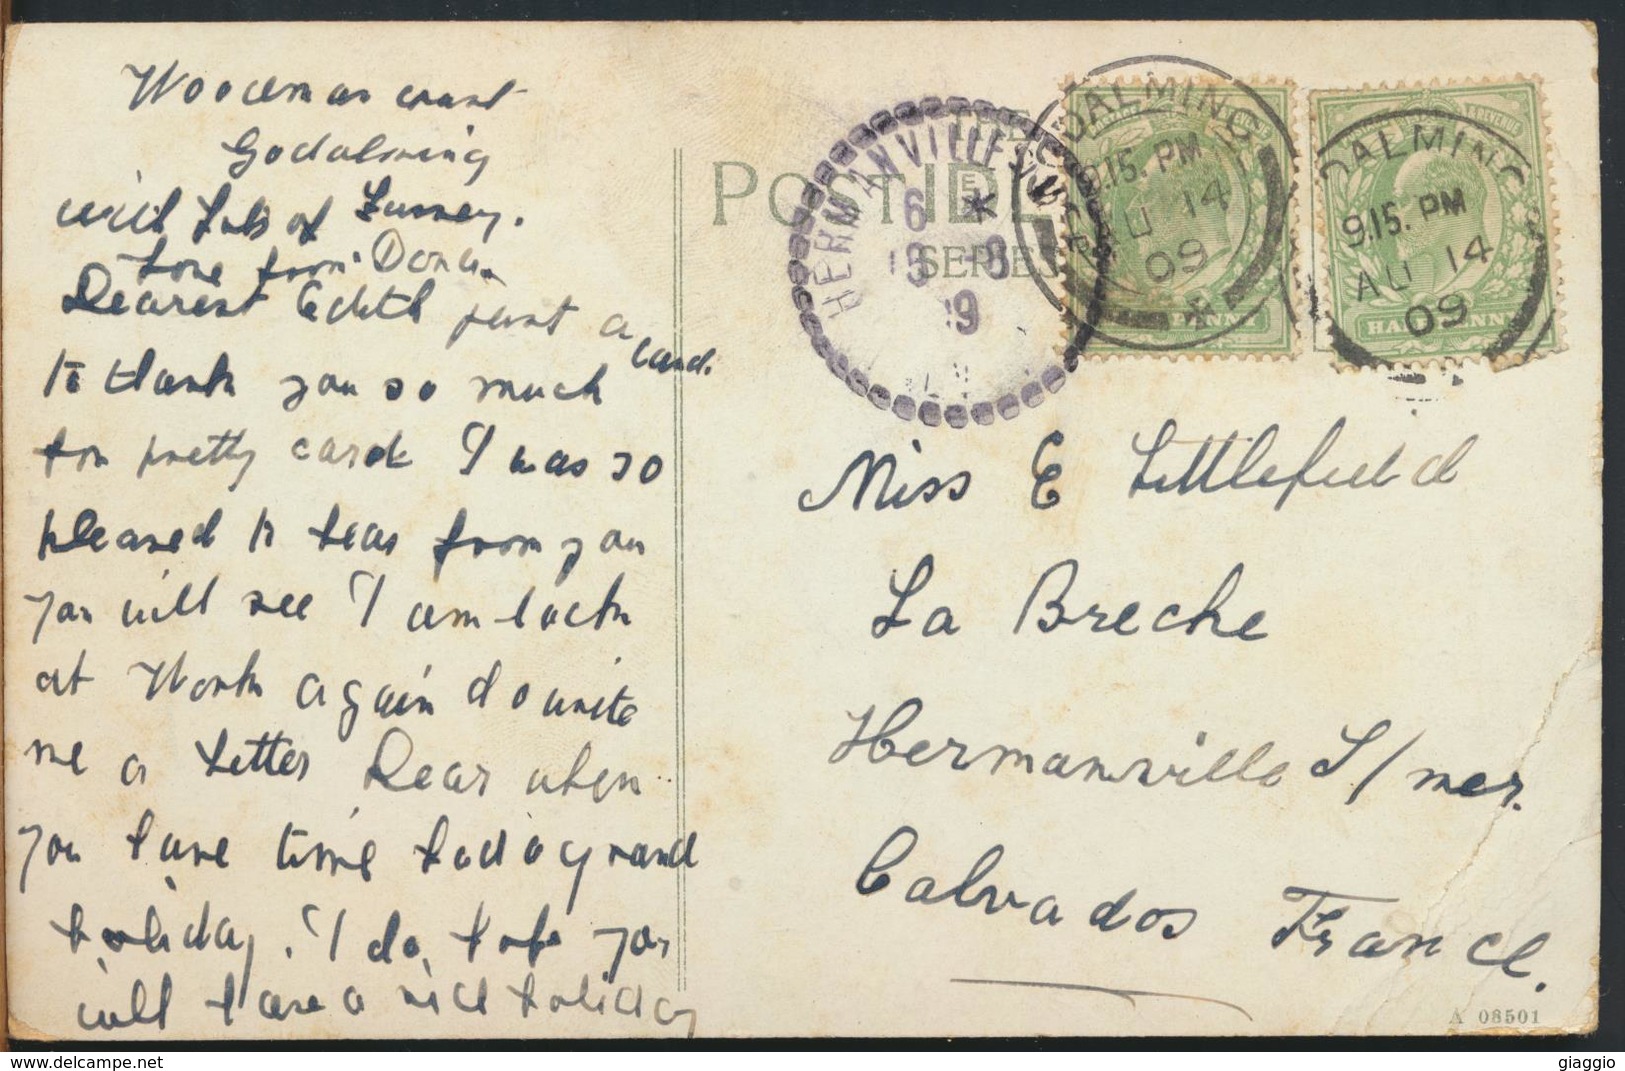 Godalming
with Lots of
Love from
Dearest Edith just a
card.
to thank you so much
for pretty card I was so
pleased to hear from you
you will see I am back
at Work again do write
me a Letter Dear when
you have time had a grand
holiday. I do hope you
will have a nice holiday
THE
POST IDE
SERIES
HERMANVILLE
6 *
9
DALMING
9.15. PM
AU 14
09
DALMING
9.15. PM
AU 14
09
REVENUE
HALFPENNY
Miss E Littlefield
La Breche
Hermanville S/mer.
Calvados France.
A 08501
delcampe.net
giaggio